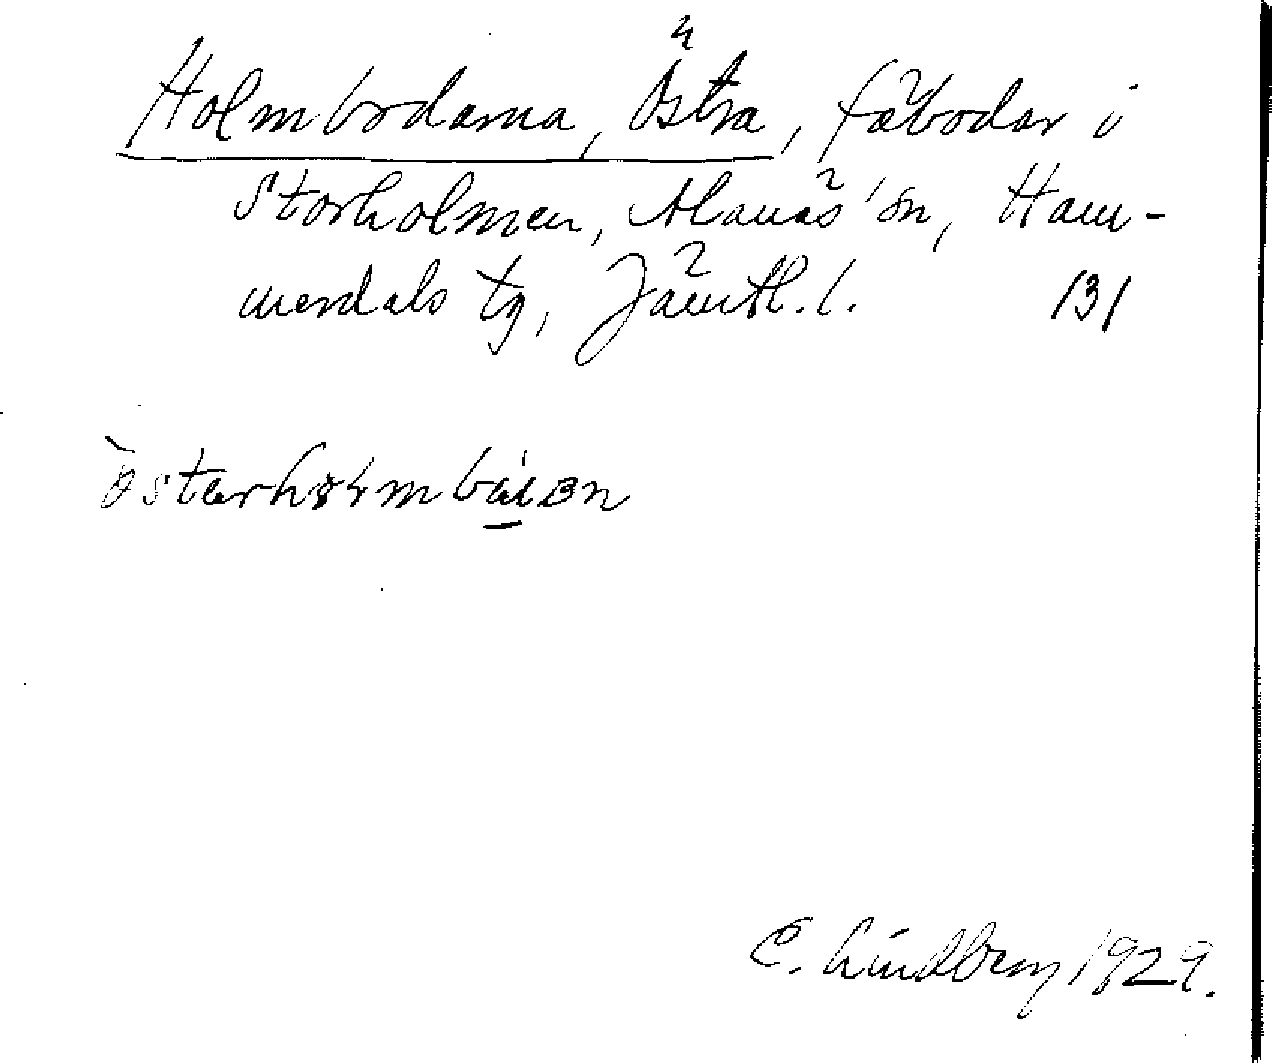 Holmbodarna, Östra, fäbodar i
Storholmen, Alanäs sn, Ham-
merdals tg, Jämtl. l. 131
C. Lindberg 1929.